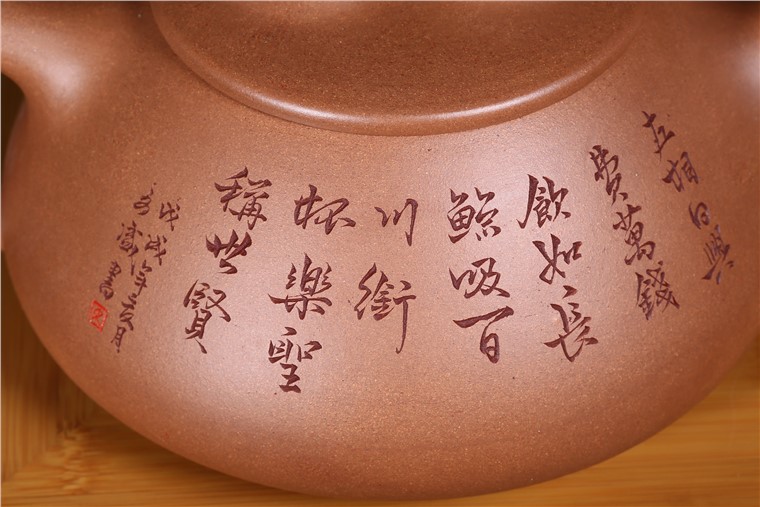 左相日興
費萬錢
飲如長
鯨吸百
川銜
杯樂聖
稱世賢
戊戌年夏月
濤書